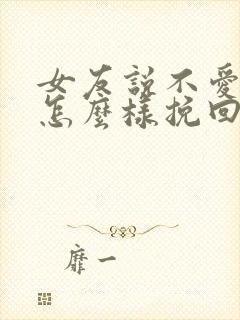 女友説不愛
怎麼樣挽回
靡一